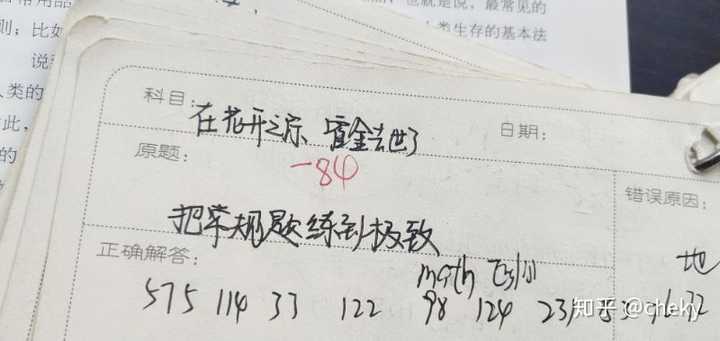 也就是说，最常见的
则；比如
人类生存的基本法
说
人类的
此，
的
科目：
在花开之际、霍金去世了
日期：
原题：
-84
错误原因：
把常规题练到极致
正确解答：
math
地
575 114 33 122 98 124 231
知乎 @cheky